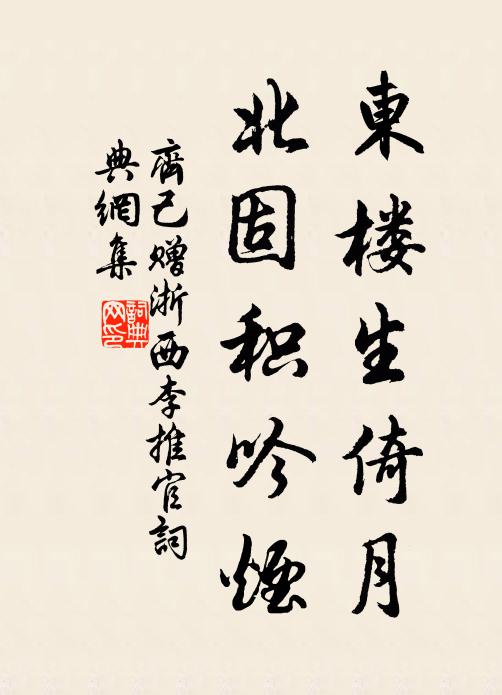 東楼生倚月
北固积吟煙
齊己赠浙西李推官詞
典網集
詞典
网印